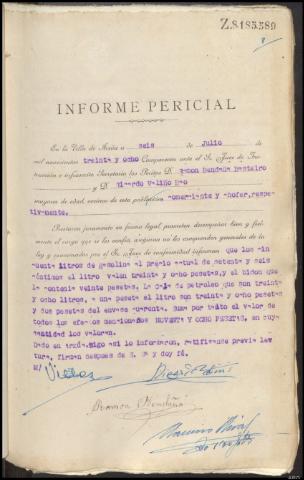 Z.8185589
INFORME PERICIAL
En la Villa de Arzúa a seis de Julio de
mil novecientos treinta y ocho Comparecen ante el S. Juez de Ins-
trucción e infrascrito Secretario los Peritos D. Ramon Mendaña
y D. Ricardo Valiño
mayores de edad, vecinos de esta comerciante y chofer, respec-
tivamente.
Prestaron juramento en forma legal, prometen desempeñar bien y fiel-
mente el cargo que se les confía, aseguran no les comprenden generales de la
ley y examinados por el S. Juez de conformidad informan que los cin
cuenta litros de gasolina al precio actual de setenta y seis
céntimos el litro valen treinta y ocho pesetas, y el bidon que
la contenia veinte pesetas. La caja de petroleo que son treinta
y ocho litros, a una peseta el litro son treinta y ocho pesetas
y dos pesetas del envase cuarenta. Suma por tanto el valor de
todos los efectos mencionados NOVENTA Y OCHO PESETAS, en cuya
cantidad los valoran.
Dado en así lo informaron, ratificanse previa lec
tura, firman despues de S. Sª y doy fé.
Ramon Mendaña